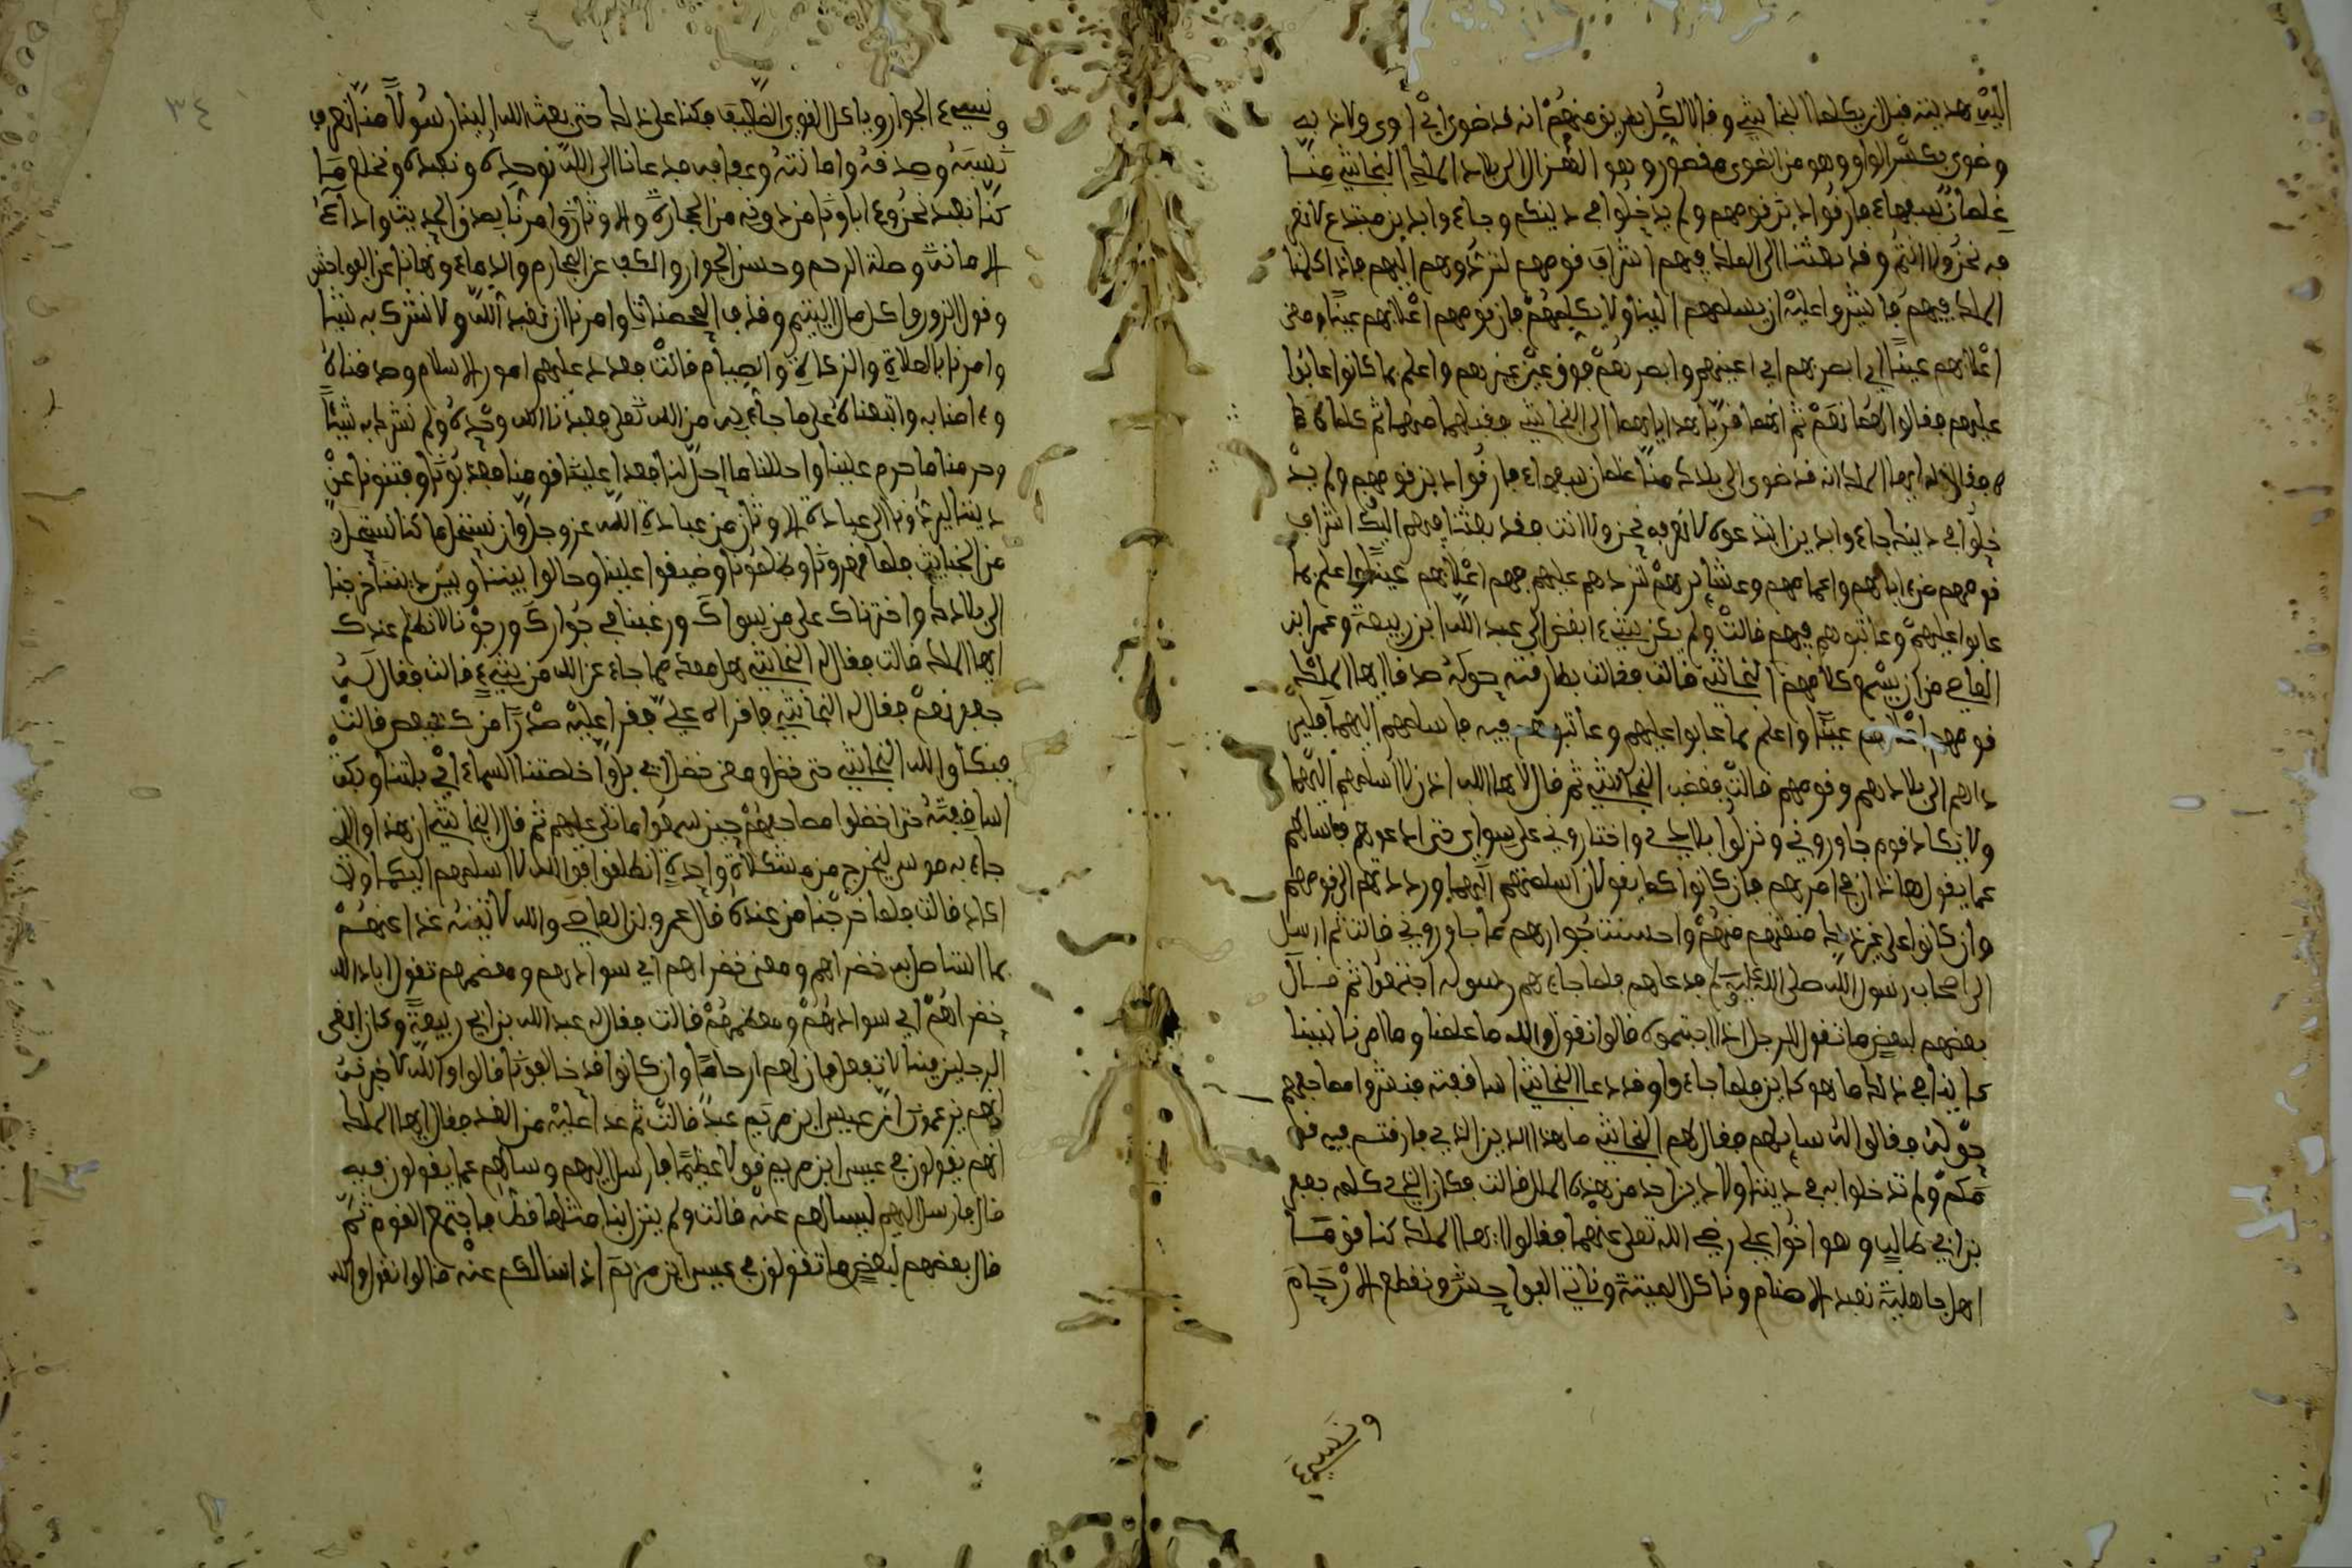 اليه هديته قبل ان يكلما النجاشي وقالا لكل بطريق منهم انه قد ضوى اي اوى ولاذ به
وضوى بكسر الواو وهو من الضوى مقصور وهو الهزال الى بلاد الملك النجاشي منا
غلمان سفهاء فارقوا دين قومهم ولم يدخلوا في دينكم وجاءوا بدين مبتدع لا نعر
فه نحن ولا انتم وقد بعثنا الى الملك فيهم اشراف قومهم لنردهم اليهم فاذا كلمنا
الملك فيهم فاشيروا عليه ان يسلمهم الينا ولا يكلمهم فان قومهم اعلا بهم عينا ومعنى
اعلا بهم عينا اي ابصر بهم اي اعينهم وابصرهم فوق عين غيرهم واعلم بما كانوا عابوا
عليهم فقالوا لهما نعم ثم انهما قربا هداياهما الى النجاشي فقبلها منهما ثم كلماه
فقالا له ايها الملك انه قد ضوى الى بلادك منا غلمان سفهاء فارقوا دين قومهم ولم يد
خلوا في دينك جاءوا بدين ابتدعوه لا نعرفه نحن ولا انت فقد بعثنا فيهم اليك اشراف
قومهم من ءابائهم واعمامهم وعشائرهم لتردهم عليهم فهم اعلا بهم عينا واعلم بما
عابوا عليهم وعاتبوهم فيهم قالت ولم يكن شيء ابغض الى عبد الله ابن ربيعة وعمر ابن
العاص من ان يسمع كلامهم النجاشي قالت فقالت بطارقته حوله صدقا ايها الملك
قومهم اعلا بهم عينا واعلم بما عابوا عليهم وعاتبوهم فيه فاسلمهم اليهما فلير
داهم الى بلادهم وقومهم قالت فغضب النجاشي ثم قال لا ها الله اذن لا اسلمهم اليهما
ولا يكاد قوم جاوروني ونزلوا بلادي واختاروني على سواي حتى ادعوهم فاسالهم
عما يقول هاذان في امرهم فان كانوا كما يقولان اسلمتهم اليهما ورددتهم الى قومهم
وان كانوا على غير ذلك منعتهم منهم واحسنت جوارهم ما جاوروني قالت ثم ارسل
الى اصحاب رسول الله صلى الله عليه وسلم فدعاهم فلما جاءهم رسوله اجتمعوا ثم قال
بعضهم لبعض ما تقول للرجل اذا اجتمعوه قالوا نقول والله ما علمنا وما امرنا نبينا
كاينا في ذلك ما هو كاين فلما جاءوا وقد دعا النجاشي اساقفته فنشروا مصاحفهم
حوله فقالوا له سايلهم فقال لهم النجاشي ما هذا الدين الذي فارقتم فيه قو
مكم ولم تدخلوا به في ديننا ولا دين احد من هذه الملل قالت فكان الذي كلمه جعفر
بن ابي طالب وهو اخو علي رضي الله تعلى عنهما فقالوا ايها الملك كنا قوما
اهل جاهلية نعبد الاصنام وناكل الميتة وناتي الفواحش ونقطع الارحام
ونسيء
٣٤
ونسيء الجوار وياكل القوي الضعيف فكنا على ذلك حتى بعث الله الينا رسولا منا نعرف
نسبه وصدقه وامانته وعفافه فدعانا الى الله نوحده ونعبده ونخلع ما
كنا نعبد نحن وءاباؤنا من دونه من الحجارة والاوثان وامرنا بصدق الحديث واداء
الامانة وصلة الرحم وحسن الجوار والكف عن المحارم والدماء ونهانا عن الفواحش
وقول الزور واكل مال اليتيم وقذف المحصنات وامرنا ان نعبد الله ولا نشرك به شيئا
وامرنا بالصلاة والزكاة والصيام قالت فعدد عليهم امور الاسلام وصدقناه
وءامنا به واتبعناه على ما جاء به من الله تعلى فعبدنا الله وحده ولم نشرك به شيئا
وحرمنا ما حرم علينا واحللنا ما احل لنا فعدا علينا قومنا فعذبونا وفتنونا عن
ديننا ليردونا الى عبادة الاوثان من عبادة الله عز وجل وان نستحل ما كنا نستحله
من الخبايث فلما قهرونا وظلمونا وضيقوا علينا وحالوا بيننا وبين ديننا خرجنا
الى بلادك واخترناك على من سواك ورغبنا في جوارك ورجونا لا نظلم عندك
ايها الملك قالت فقال له النجاشي هل معك مما جاء عن الله من شيء قالت فقال له
جعفر نعم فقال له النجاشي فاقراه علي فقرا عليه صدرا من كهيعص قالت
فبكا والله النجاشي حتى خضل ومعنى خضل اي بل واخلصتنا السماء اي بلتنا وبكت
اساقفته حتى اخضلوا مصاحفهم حين سمعوا ما تلي عليهم ثم قال النجاشي ان هذا والذي
جاء به موسى ليخرج من مشكاة واحدة انطلقوا فوالله لا اسلمهم اليكما ولا
اكاد قالت فلما خرجنا من عنده قال عمرو بن العاص والله لاتينه غدا عنهم
بما استاصل به خضراهم ومعنى خضراهم اي سوادهم ومعضمهم تقول اباد الله
خضراهم اي سوادهم ومعظمهم قالت فقال له عبد الله بن ابي ربيعة وكان اتقى
الرجلين فينا لا تفعل فان لهم ارحاما وان كانوا قد خالفونا قالوا والله لاخبرنه
انهم يزعمون ان عيسى ابن مريم عبد قالت ثم غدا عليه من الغد فقال ايها الملك
انهم يقولون في عيسى ابن مريم قولا عظيما فارسل اليهم وسالهم عما يقولون فيه
قال فارسل اليهم ليسالهم عنه قالت ولم ينزل بنا مثلها قط فاجتمع القوم ثم
قال بعضهم لبعض ما تقولون في عيسى ابن مريم اذا سالكم عنه قالوا نقول والله